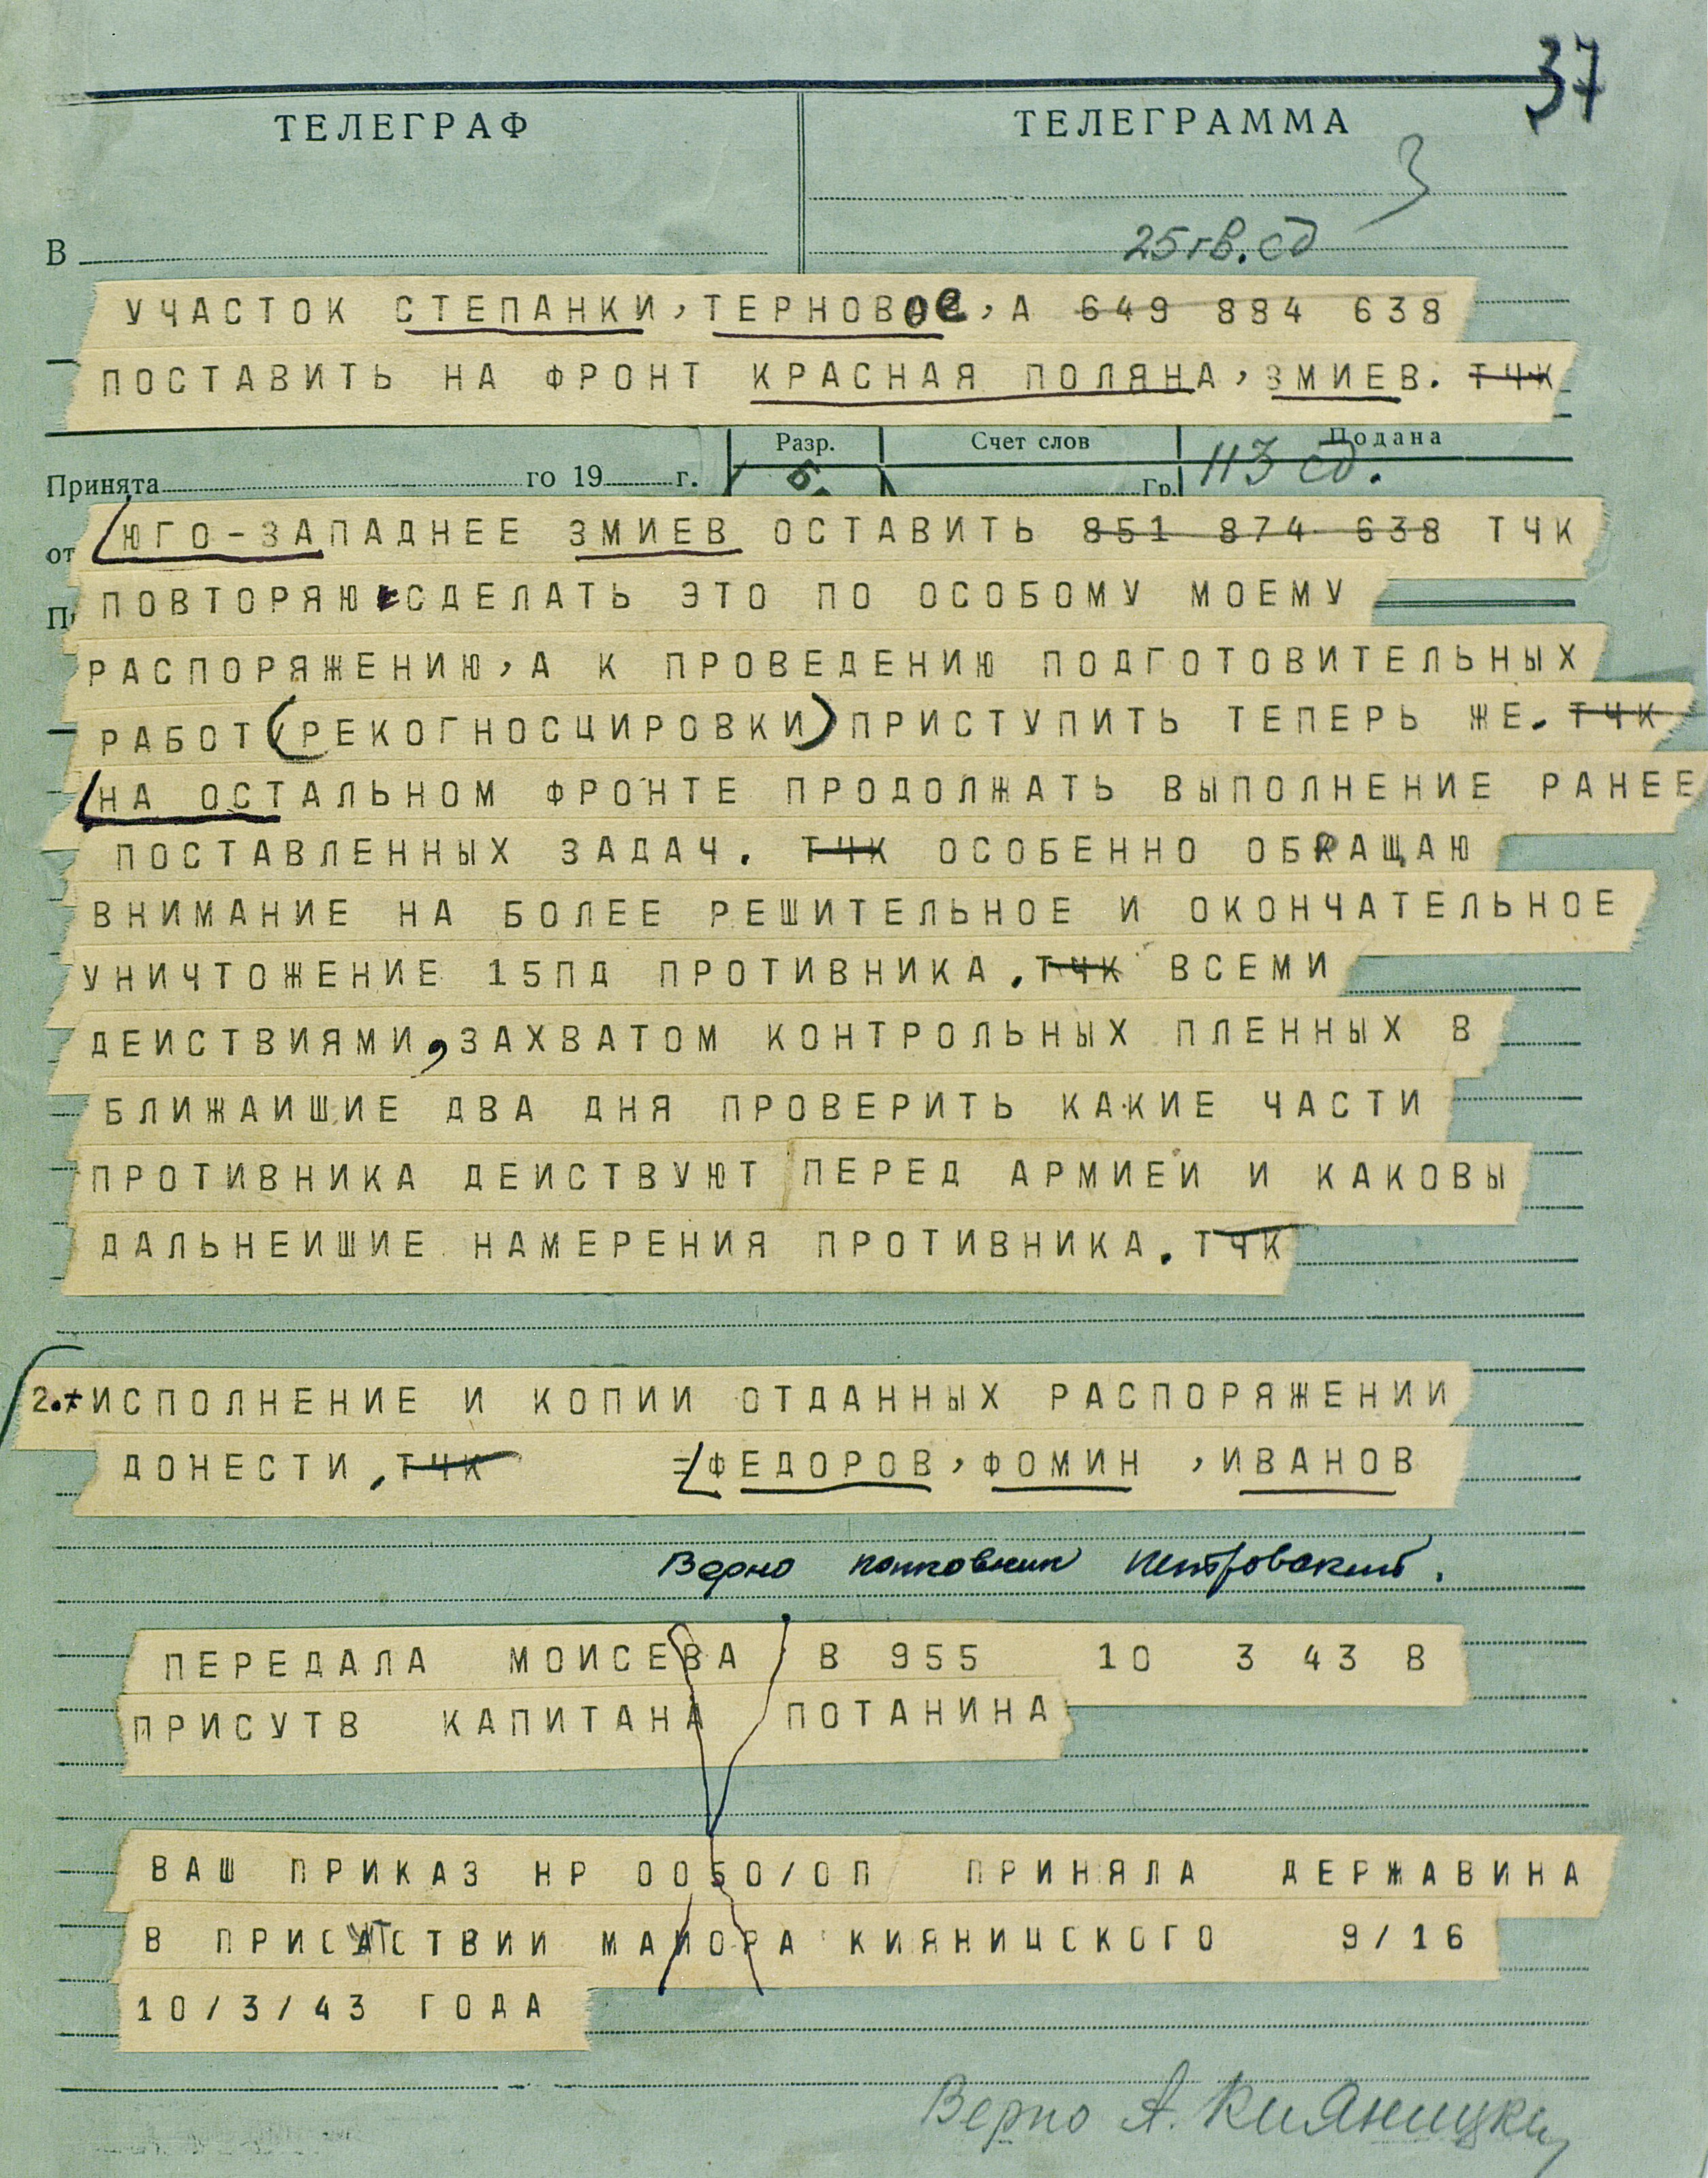 37
ТЕЛЕГРАФ ТЕЛЕГРАММА
3
В 25 гв. сд
УЧАСТОК СТЕПАНКИ, ТЕРНОВОЕ, А 649 884 638
ПОСТАВИТЬ НА ФРОНТ КРАСНАЯ ПОЛЯНА, ЗМИЕВ. ТЧК
Разр. Счет слов Подана
Принята го 19 г. Гр. 113 сд.
ЮГО-ЗАПАДНЕЕ ЗМИЕВ ОСТАВИТЬ 851 874 638 ТЧК
от
ПОВТОРЯЮ СДЕЛАТЬ ЭТО ПО ОСОБОМУ МОЕМУ
РАСПОРЯЖЕНИЮ, А К ПРОВЕДЕНИЮ ПОДГОТОВИТЕЛЬНЫХ
РАБОТ (РЕКОГНОСЦИРОВКИ) ПРИСТУПИТЬ ТЕПЕРЬ ЖЕ. ТЧК
НА ОСТАЛЬНОМ ФРОНТЕ ПРОДОЛЖАТЬ ВЫПОЛНЕНИЕ РАНЕЕ
ПОСТАВЛЕННЫХ ЗАДАЧ. ТЧК ОСОБЕННО ОБРАЩАЮ
ВНИМАНИЕ НА БОЛЕЕ РЕШИТЕЛЬНОЕ И ОКОНЧАТЕЛЬНОЕ
УНИЧТОЖЕНИЕ 15ПД ПРОТИВНИКА. ТЧК ВСЕМИ
ДЕИСТВИЯМИ, ЗАХВАТОМ КОНТРОЛЬНЫХ ПЛЕННЫХ В
БЛИЖАИШИЕ ДВА ДНЯ ПРОВЕРИТЬ КАКИЕ ЧАСТИ
ПРОТИВНИКА ДЕИСТВУЮТ ПЕРЕД АРМИЕИ И КАКОВЫ
ДАЛЬНЕИШИЕ НАМЕРЕНИЯ ПРОТИВНИКА. ТЧК
2. ИСПОЛНЕНИЕ И КОПИИ ОТДАННЫХ РАСПОРЯЖЕНИИ
ДОНЕСТИ. ТЧК =ФЕДОРОВ, ФОМИН , ИВАНОВ
Верно полковник Петровский.
ПЕРЕДАЛА МОИСЕВА В 955 10 3 43 В
ПРИСУТВ КАПИТАНА ПОТАНИНА
ВАШ ПРИКАЗ НР 0050/ОП ПРИНЯЛА ДЕРЖАВИНА
В ПРИСУТСТВИИ МАИОРА КИЯНИЦСКОГО 9/16
10/3/43 ГОДА
Верно А. Кияницкий